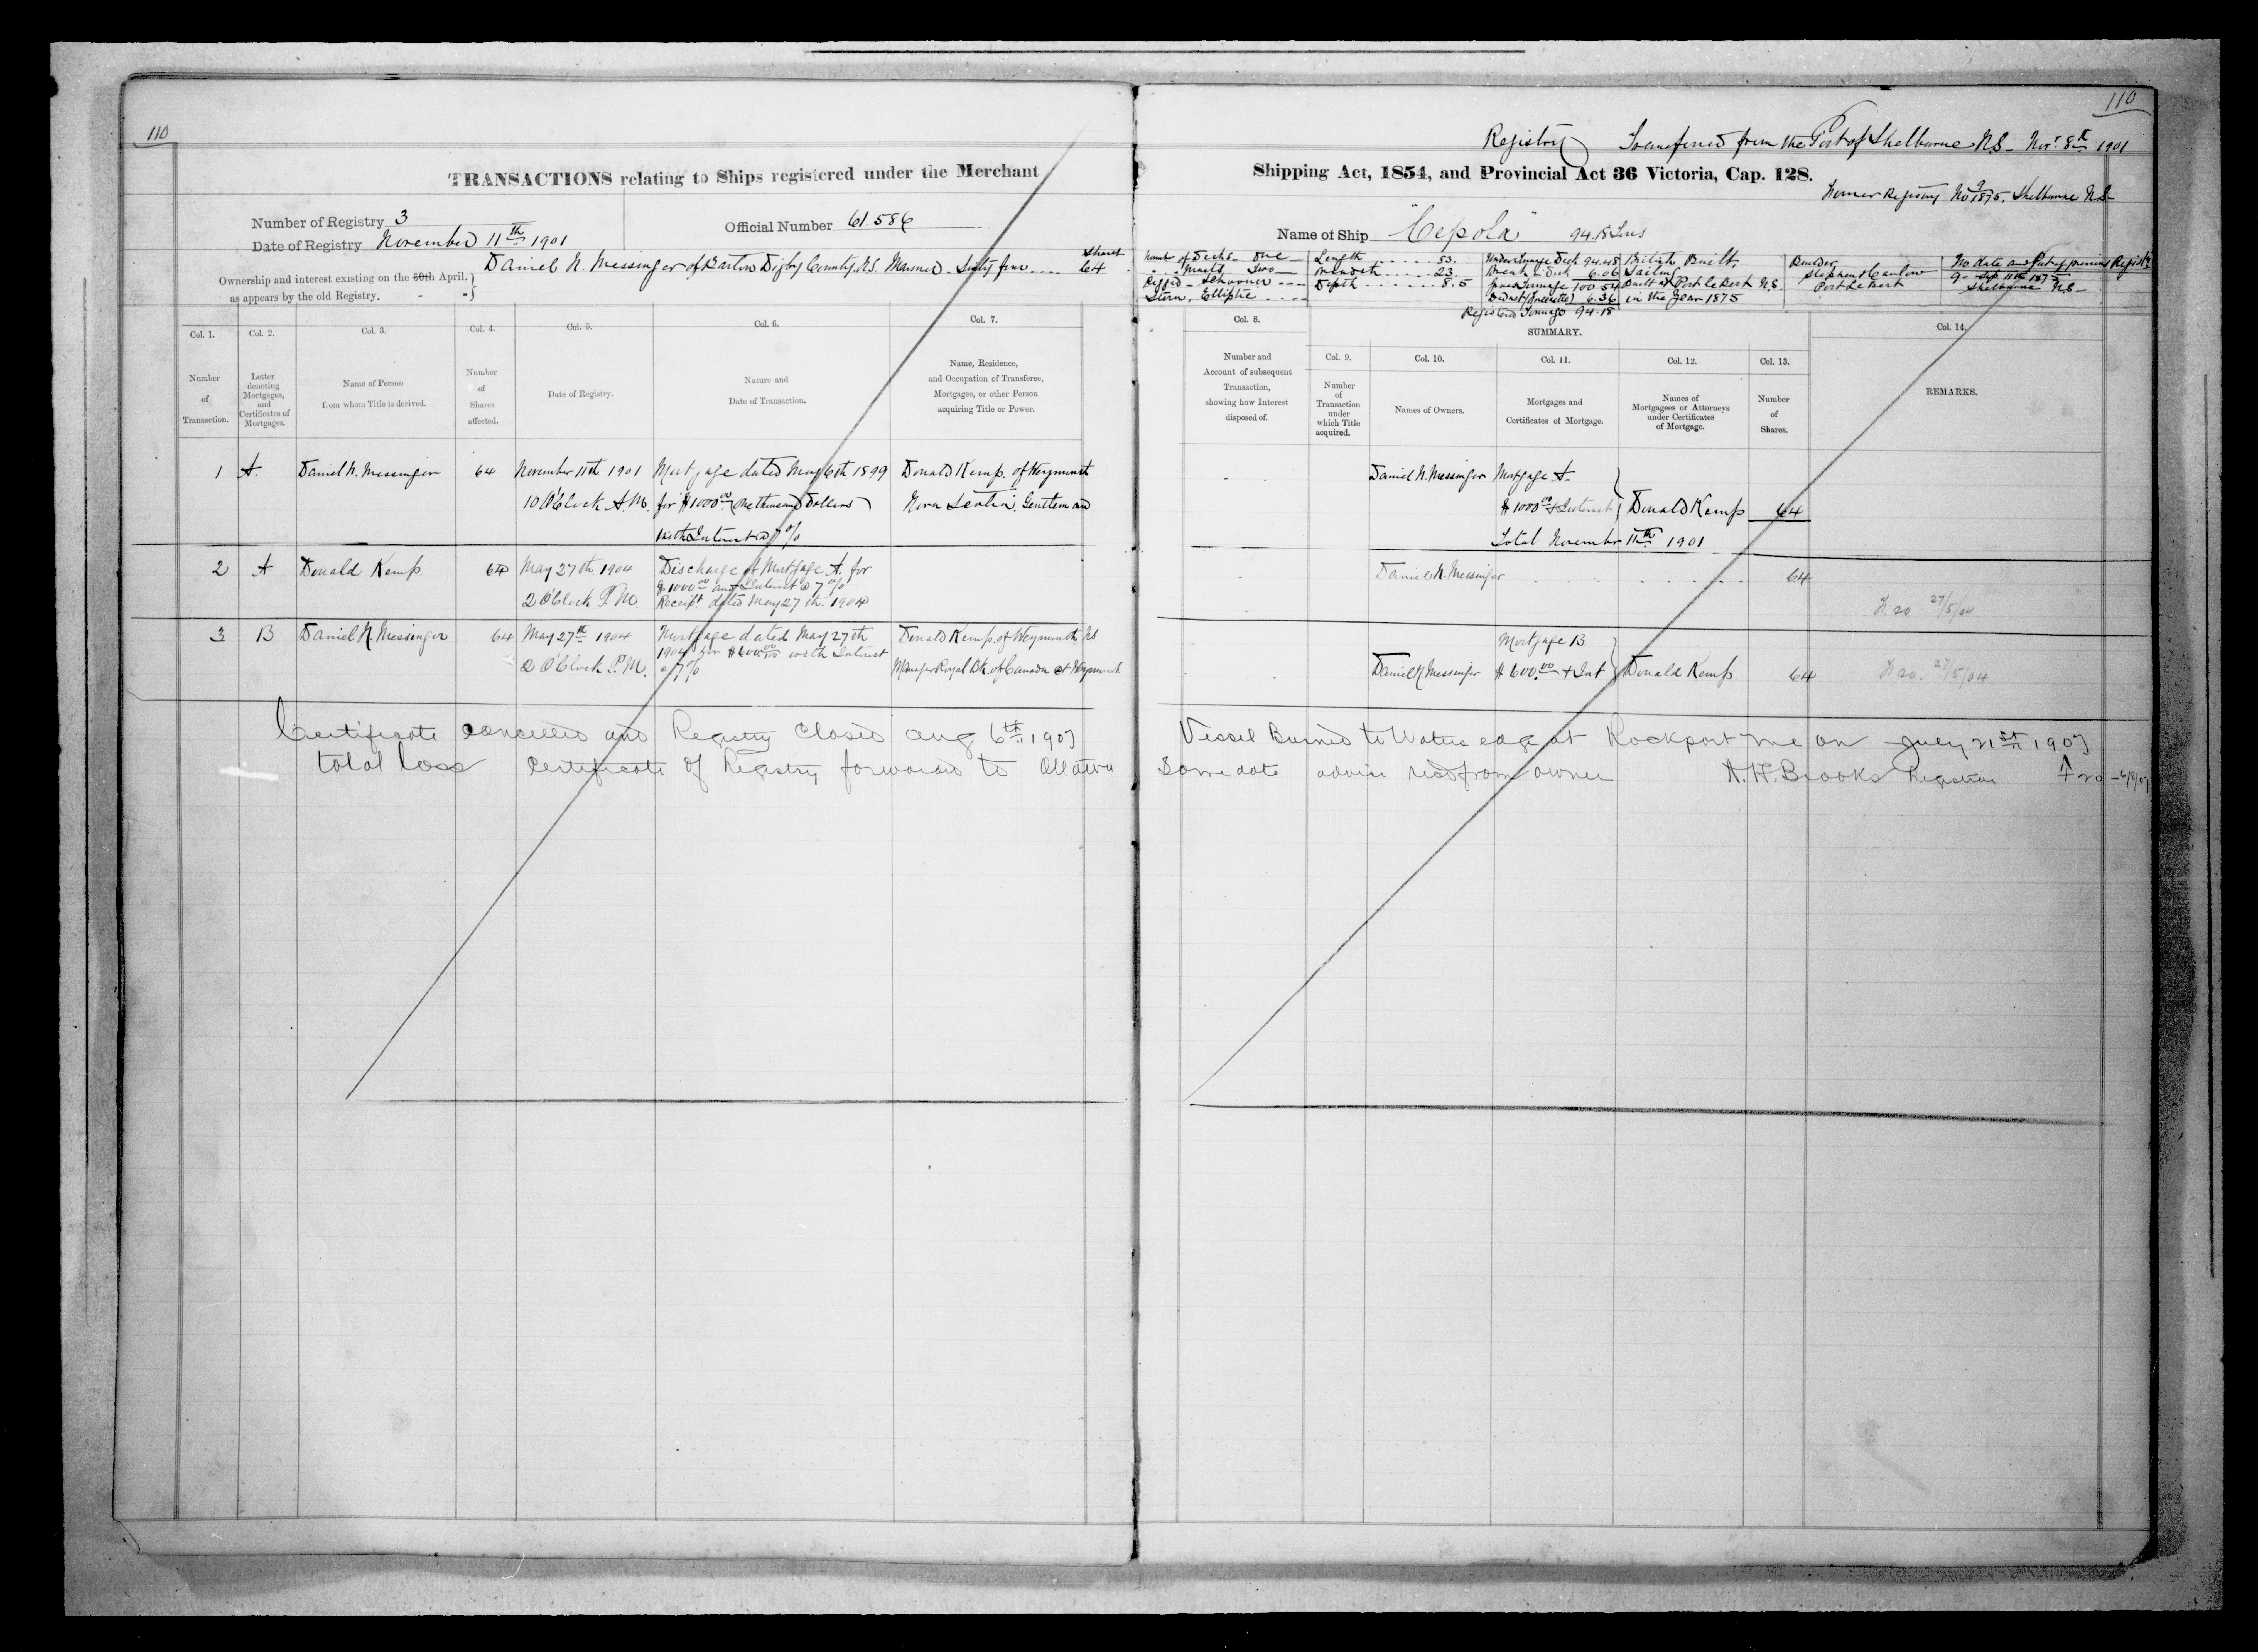 110
TRANSACTIONS relating to Ships registered under the Merchant
Number of Registry 3
Date of Registry November 11th 1901
Official Number 61.586
Ownership and interest existing on the 30th April,
as appears by the old Registry. - -
Daniel N. Messinger of Barton Digby County. N.S. Mariner. Sixty four....
Shares
64
Col. 1.
Number
of
Transaction.
Col. 2.
Letter
denoting
Mortgages,
and
Certificates of
Mortgages.
Col. 3.
Name of Person
from whom Title is derived.
Col. 4.
Number
of
Shares
affected.
Col. 5.
Date of Registry.
Col. 6.
Nature and
Date of Transaction.
Col. 7.
Name, Residence,
and Occupation of Transferee,
Mortgagee, or other Person
acquiring Title or Power.
1 A. Daniel N. Messinger 64 November 11th 1901 Mortgage dated May 6th 1899 Donald Kemp. of Weymouth
10 O'Clock A.M. for $1000.00 (One thousand Dollars) Nova Scotia. Gentleman
with Interest @ 7%
2 A Donald Kemp 64 May 27th 1904 Discharge of Mortgage A. for
$1000.00 and Interest @ 7%
2 O'Clock P.M. Receipt dated May 27th. 1904
3 B Daniel N. Messinger 64 May 27th 1904 Mortgage dated May 27th Donald Kemp. of Weymouth NS
1904 for $600.00 with Interest
2 O'Clock P.M. @ 7% Manager Royal Bk. of Canada at Weymouth
Certificate cancelled and Registry Closed Aug 6th 1907
total loss Certificate of Registry forwarded to Ottawa
110
Registry Transferred from the Port of Shelburne N.S- Novr. 8th 1901
Shipping Act, 1854, and Provincial Act 36 Victoria, Cap. 128.
Former Registry No 9 1875. Shelburne N.S-
Name of Ship "Cepola" 94.18 Tons
Number of Decks - One
" " Masts Two
Rigged - Schooner
Stern. Elliptic
Length ...... 83.
Breadth ...... 23.
Depth ...... 8.5
Under Tonnage Deck 94.48
Break " Deck 6.06
Gross Tonnage 100 54
6.36
Registered Tonnage 94.18
British Built,
Sailing
Built at Port Le Bert N.S.
in the Year 1875
Builder,
Stephen
Port Le Bert
No date and Port of previous Registry
9 - Sep 11th 1875
Shelburne N.S-
Col. 8.
Number and
Account of subsequent
Transaction,
showing how Interest
disposed of.
SUMMARY.
Col. 9.
Number
of
Transaction
under
which Title
acquired.
Col. 10.
Names of Owners.
Col. 11.
Mortgages and
Certificates of Mortgage.
Col. 12.
Names of
Mortgagees or Attorneys
under Certificates
of Mortgage.
Col. 13.
Number
of
Shares.
Col. 14.
REMARKS.
Daniel N. Messinger Mortgage A.
$1000.00 + Interest Donald Kemp 64
Total November 11th 1901
Daniel N. Messinger 64
F. 20 27/5/04
Mortgage B.
Daniel N. Messinger $600.00 + Int Donald Kemp. 64 F. 20. 27/5/04
Vessel Burned to Waters edge at Rockport Me on July 21st 1907
Same date advice recd from owner A. H. Brooks Registrar F 20 - 6/8/07